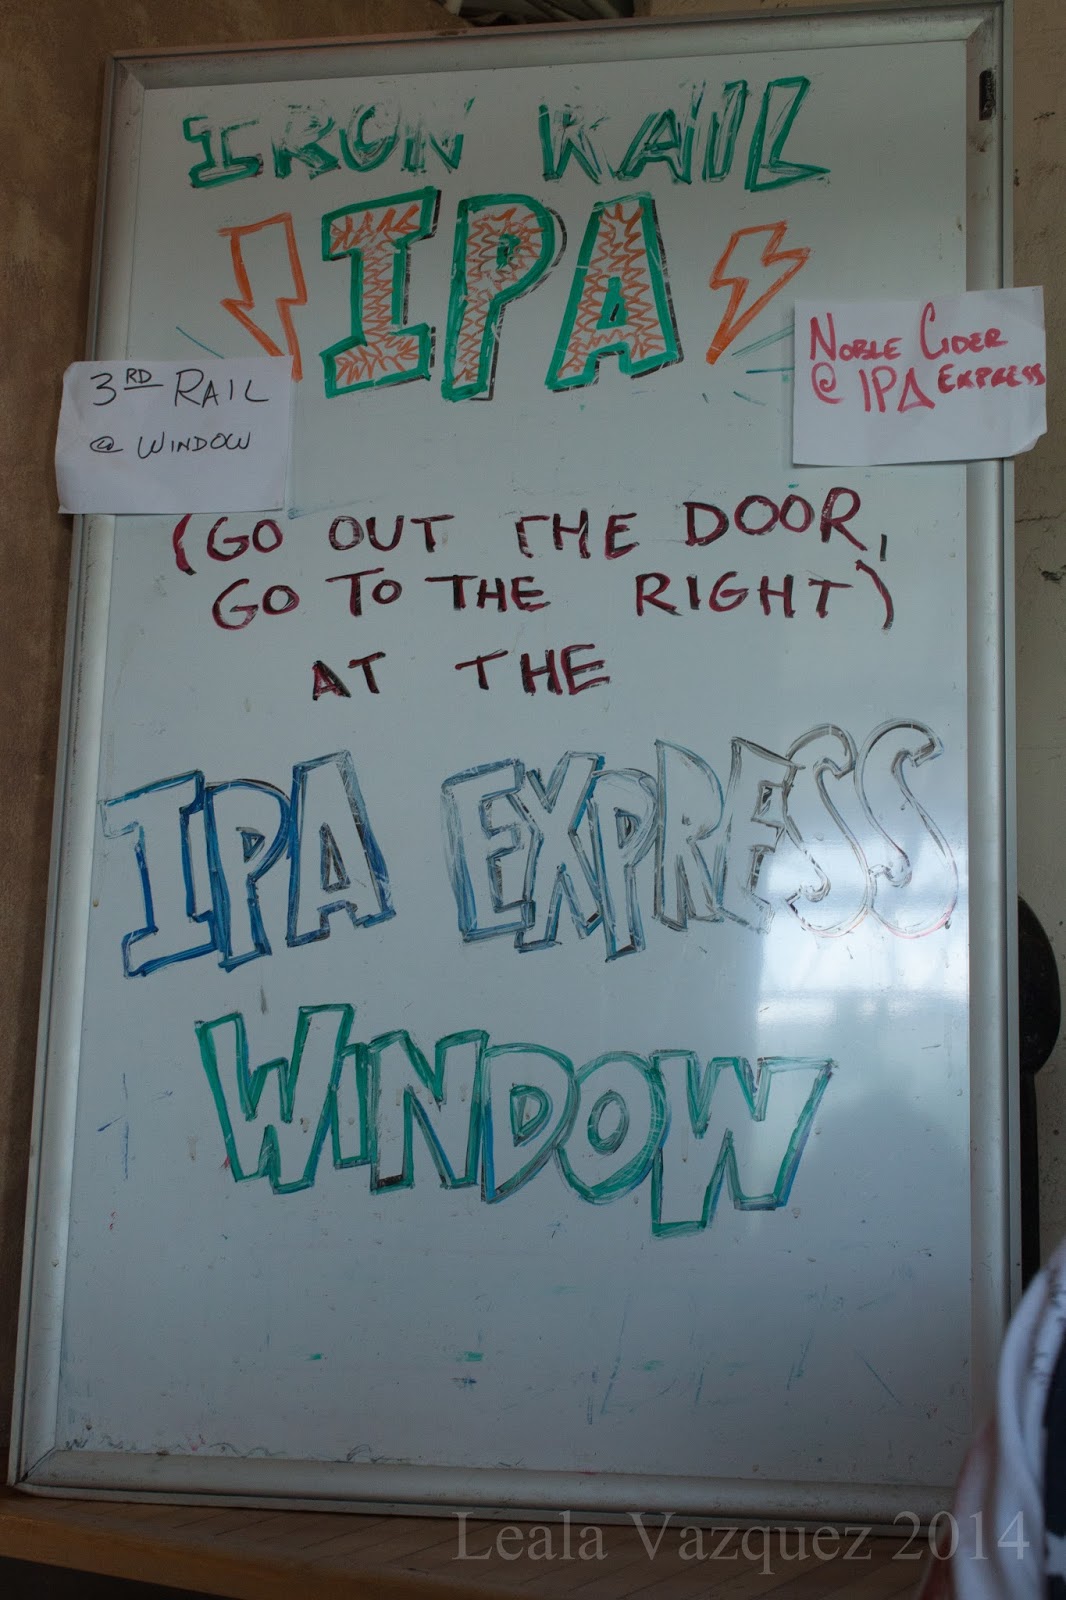 IRON RAIL
IPA
3RD RAIL
@ WINDOW
NOBLE CIDER
@ IPA EXPRESS
(GO OUT THE DOOR,
GO TO THE RIGHT)
AT THE
IPA EXPRESS
WINDOW
Leala Vazquez 2014